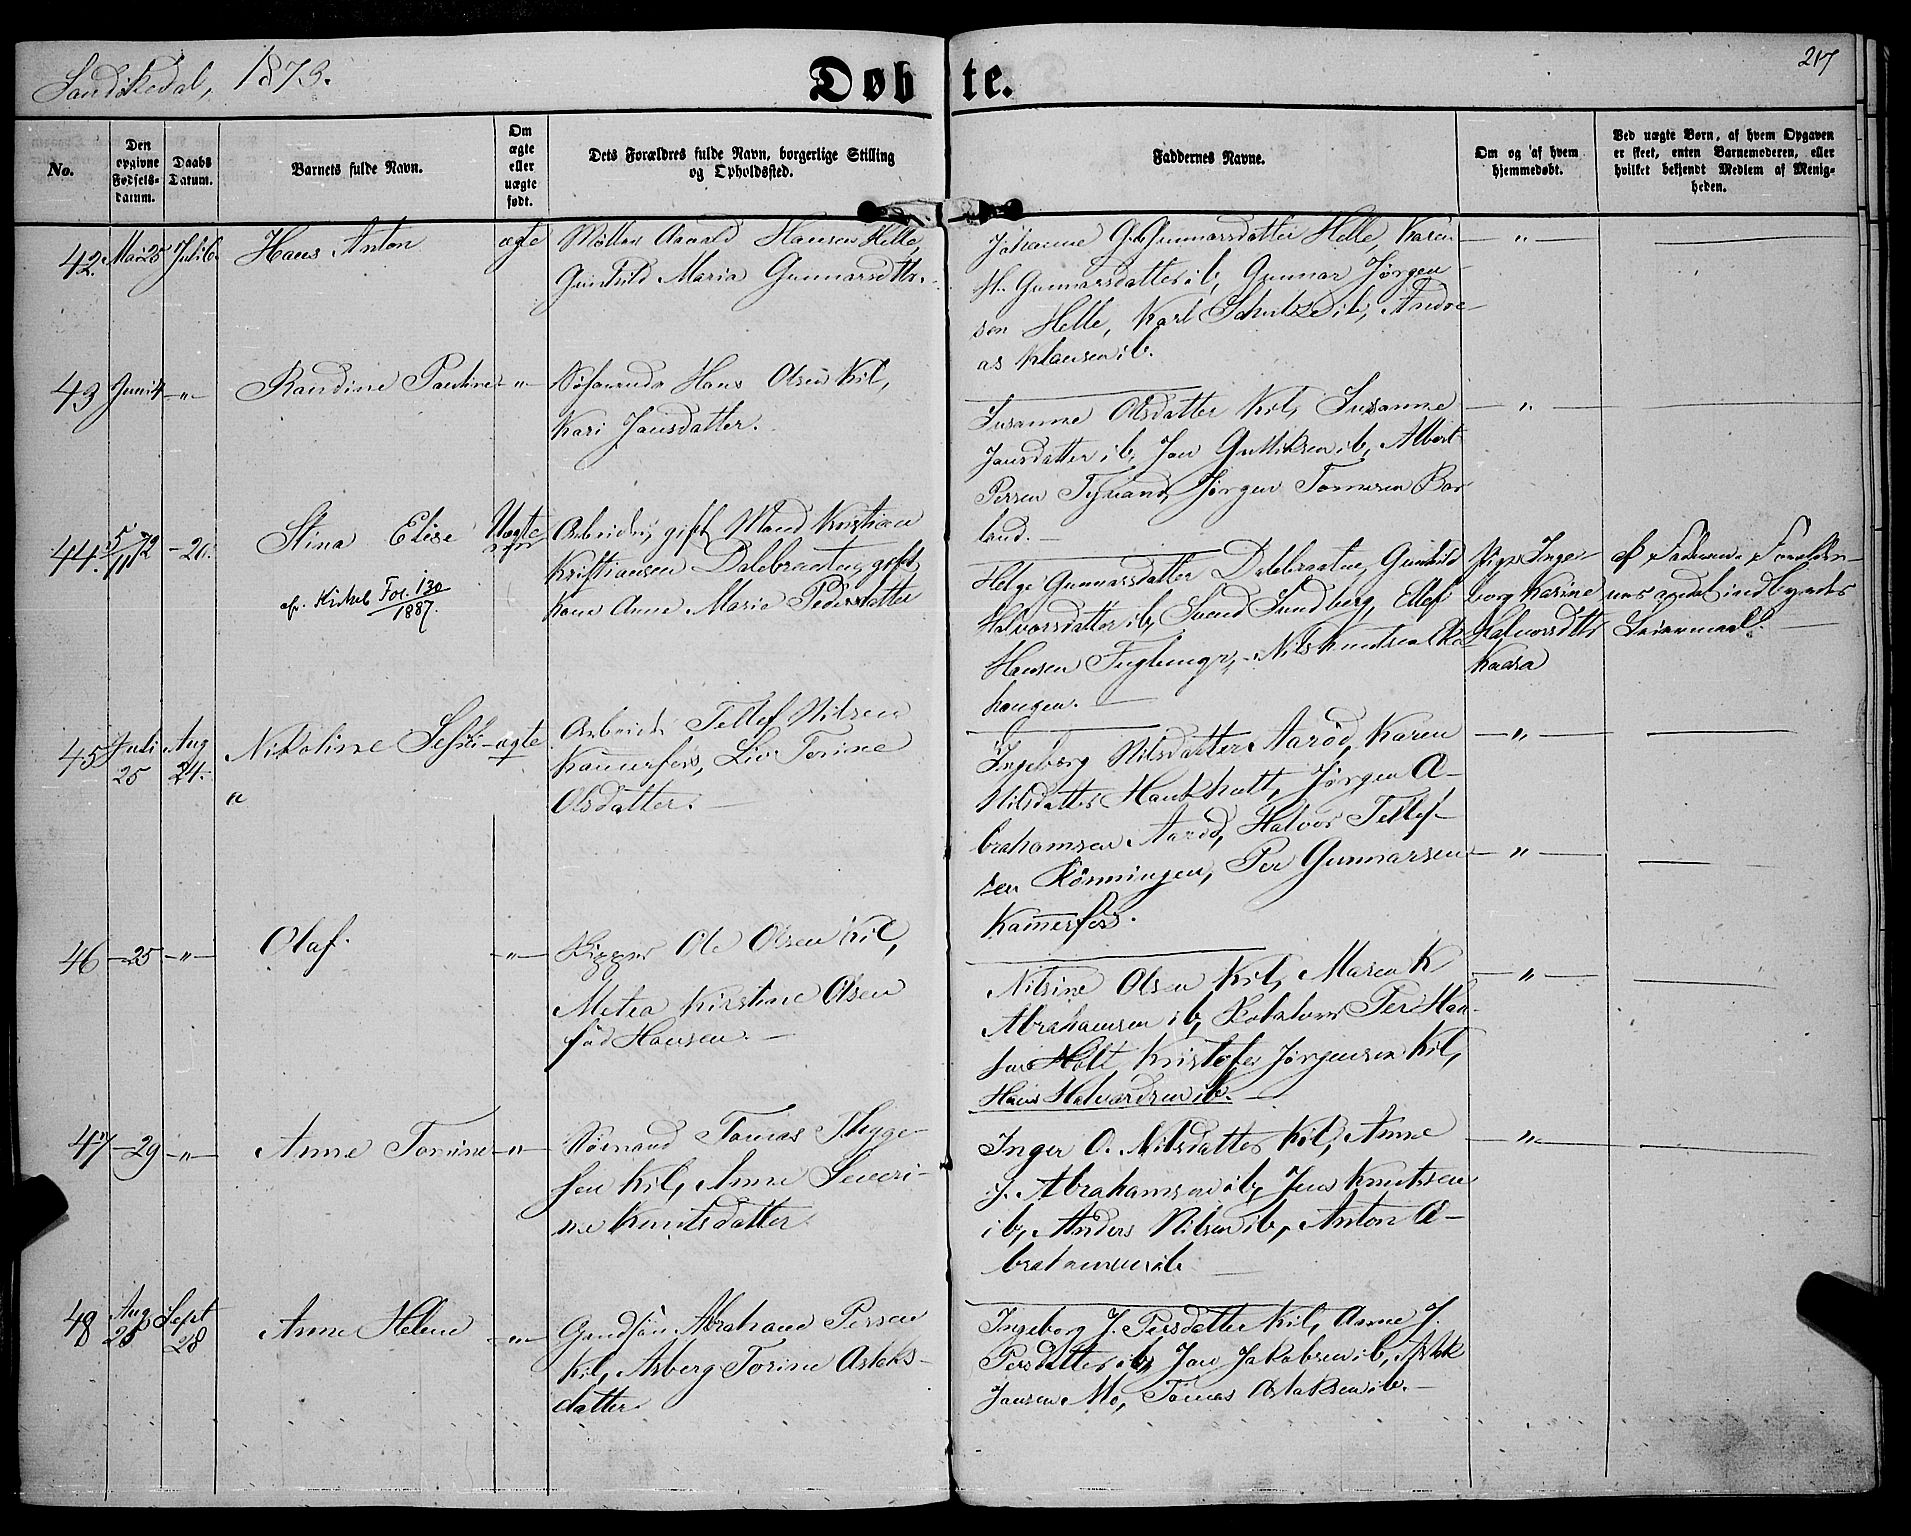 Sandökedal, 1873.
Døbte.
217
No.
Den opgivne Fødselsdatum.
Daabs Datum.
Barnets fulde Navn.
Om ægte eller uægte født.
Dets Forældres fulde Navn, borgerlige Stilling og Opholdssted.
Faddernes Navne.
Om og af hvem hjemmedøbt.
Ved uægte Børn, af hvem Opgaven er skeet, enten Barnemoderen, eller hvilket bekjendt Medlem af Menigheden.
42. Mai 25 Juli 6. Hans Anton ægte
Hansen Helle,
Gunhild Maria Gunnarsdtr.
Johanne G. Gunnarsdatter Helle, Karen
H. Gunnarsdatter ib, Gunnar Jørgen
sen Helle, Karl Schulze ib, Andre
as Klausen ib.
43 Juni 4 -"- Randine Pauline -"-
Søfarende Hans Olsen Kil,
Kari Jansdatter.
Susanne Olsdatter Kil, Susanne
Jansdatter ib, Jan Gulliksen ib, Albert
Persen Tisland, Jørgen Tomesen Bor
land.
44. 5/11 72 -20. Stina Elise Uægte
cfr. Kirkeb Fol. 130
1887.
Arbeider, gift Mand Kristian
Kristiansen Dalebraaten, gift
Kone Anne Maria Pedersdatter
Helge Gunnarsdatter Dalebraaten, Gunhild
Halvorsdatter ib, Svend Sundberg, Ellef
Hansen Fuglemyr, Nils Knutsen
haugen.
Pige Inge-
borg Karine
Halvorsdtr
Kaasa
af Faderen. Forældre-
nes andet indbyrdes
Leiermaal.
45 Juli 25 Aug 24. Nikoline Sefri- ægte
a
Arbeider Tellef Nilsen
Kammerfoss, Liv Torine
Olsdatter.
Ingeborg Nilsdatter Aarød, Karen
Nilsdatter Haukholt, Jørgen A-
brahamsen Aarød, Halvor Tellef-
sen Rønningen, Per Gunnarsen
Kammerfoss.
46 -25 -"- Olaf. -"-
Skipper Ole Olsen Kil,
Metea Kirstine Olsen
fød Hansen.
Nilsine Olsen Kil, Maren K
Abrahamsen ib, Per Han-
sen Holt, Kristofer Jørgensen Kil,
Hans Halvardsen ib.
47 -29 -"- Anne Tomine -"-
Sømand Tomas Thyge-
sen Kil, Anne Severi-
ne Knutsdatter.
Inger O. Nilsdatter Kil, Anne
J. Abrahamsen ib, Jens Knutsen
ib, Anders Nilsen ib, Anton A-
brahamsen ib
48 Aug 25 Sept 28 Anne Helene -"-
Abraham Persen
Kil, Asberg Torine Aslaks-
datter.
Ingeborg J. Persdatter Kil, Anne J.
Persdatter ib, Jan Jakobsen ib, Aslak
Jansen Mo, Tomas Aslaksen ib.